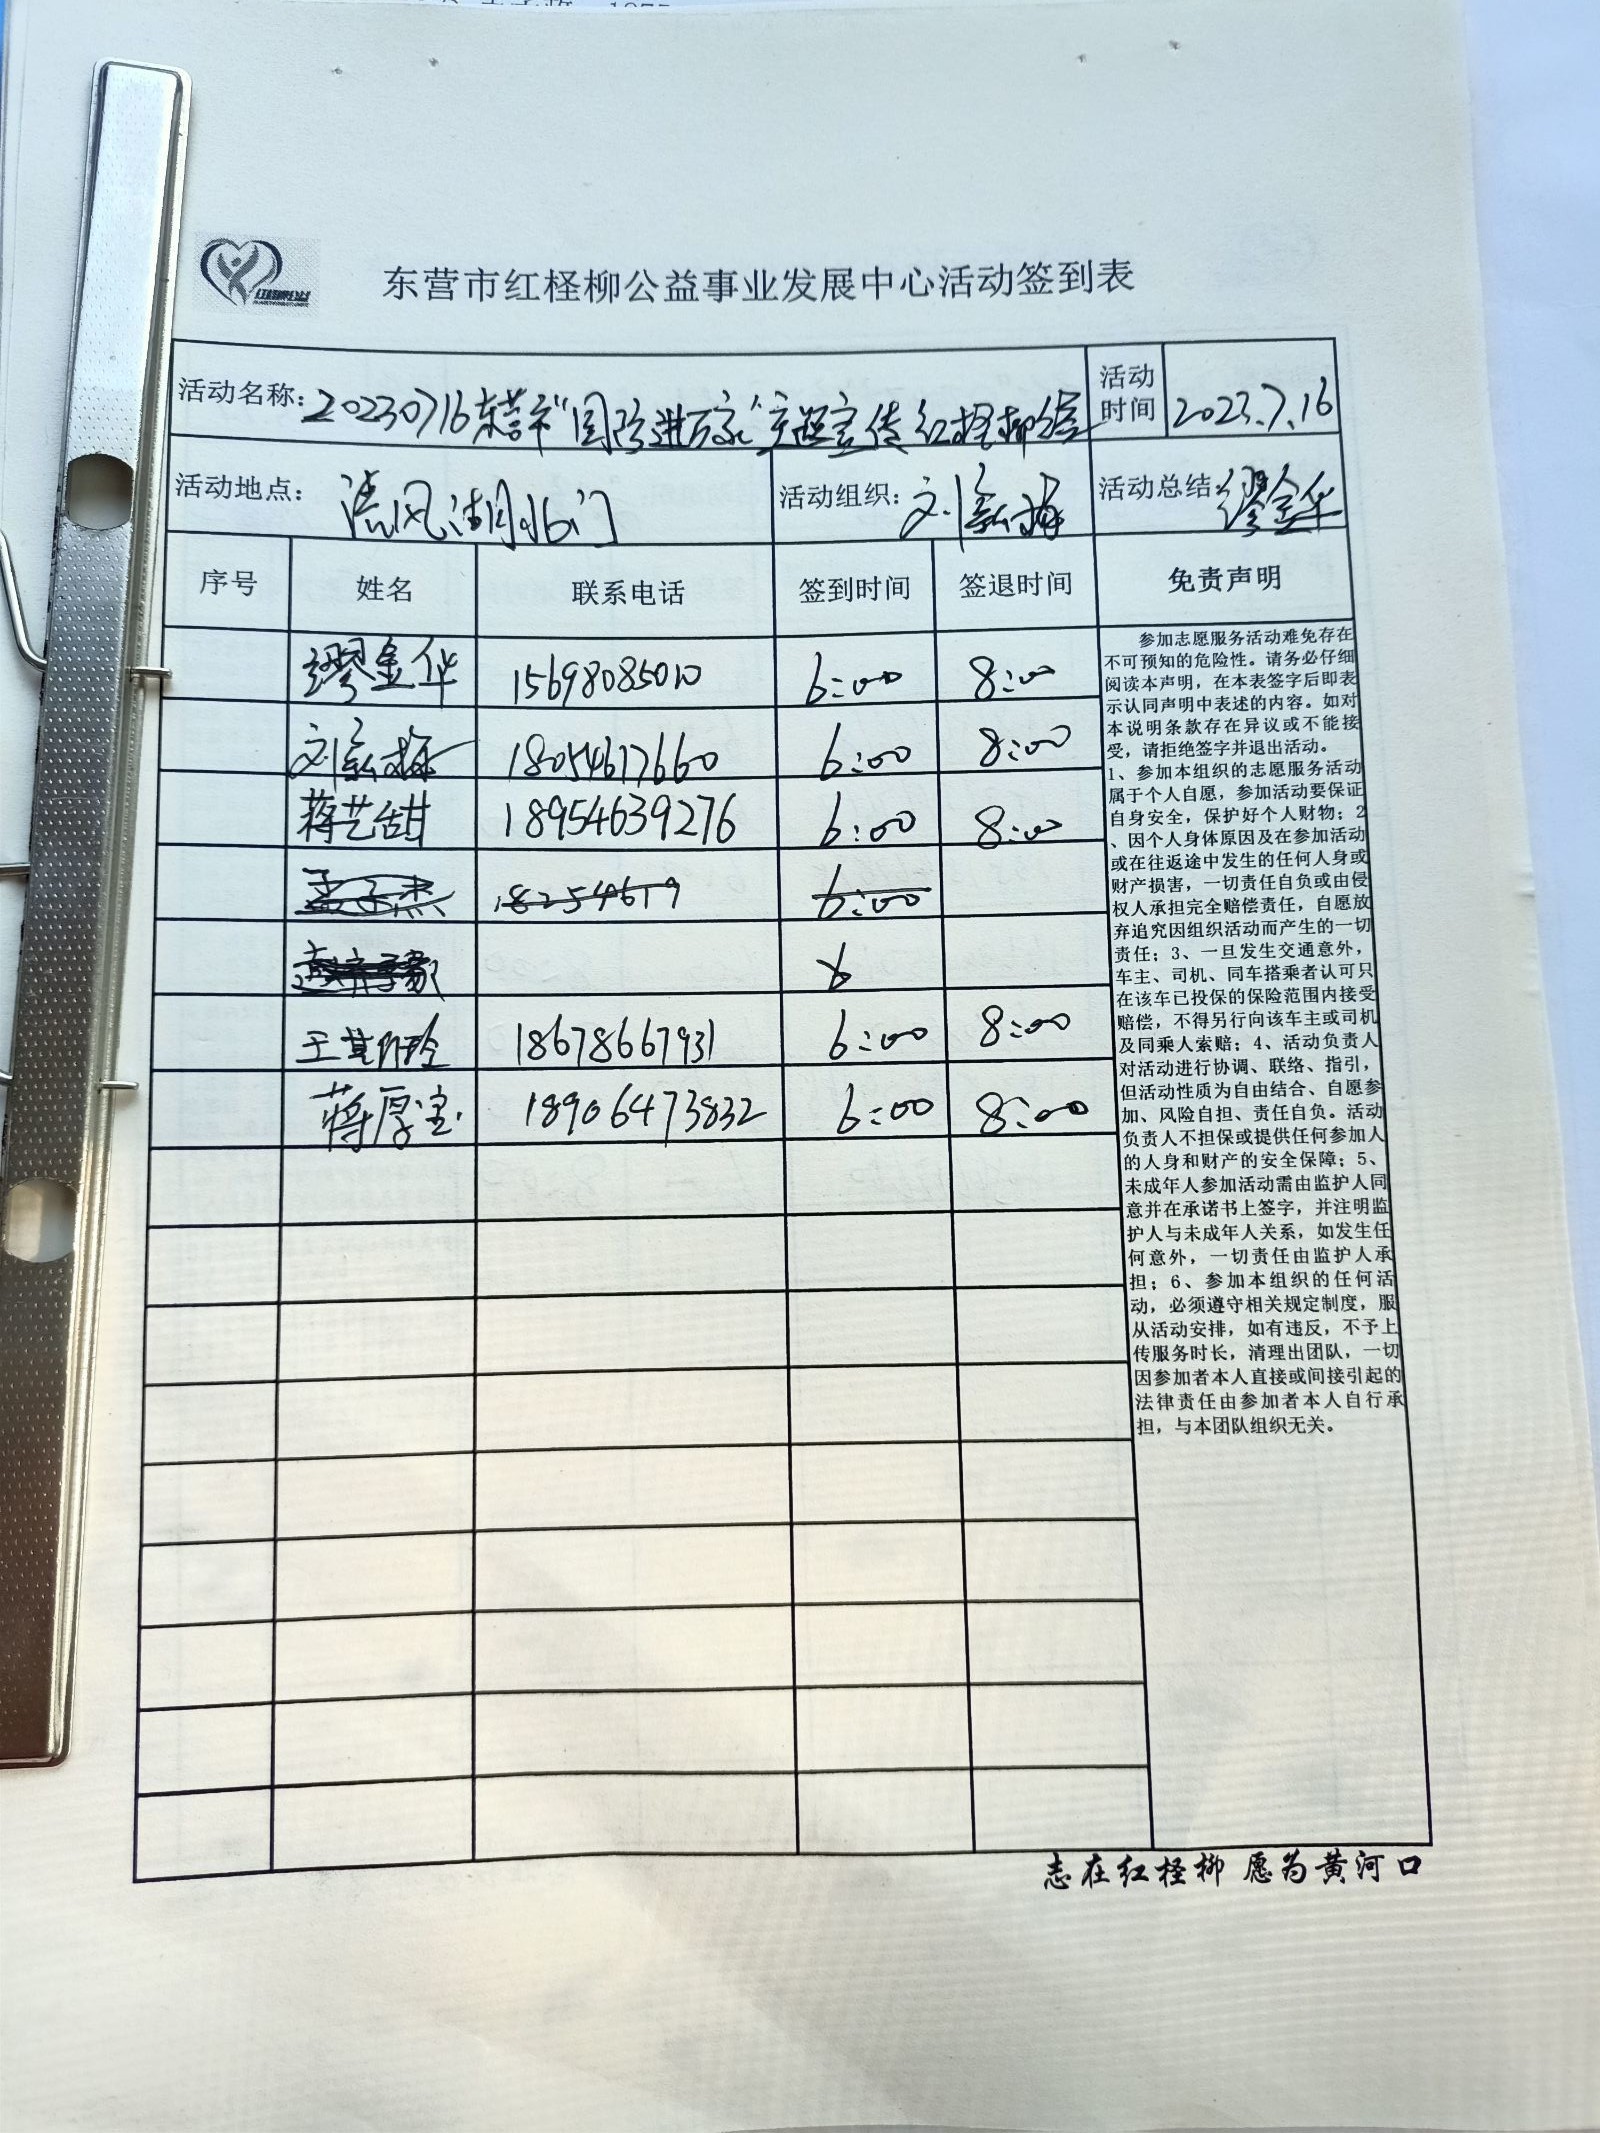 东营市红柽柳公益事业发展中心活动签到表
活动名称: 20230716东营市"国防进万家"主题宣传红柽柳站 活动时间 2023.7.16
活动地点: 清风湖北门 活动组织: 刘新梅 活动总结: 缪金华
序号 姓名 联系电话 签到时间 签退时间 免责声明
缪金华 15698085010 6:00 8:00
刘新梅 18054617660 6:00 8:00
蒋艺甜 18954639276 6:00 8:00
孟子杰 18254619 6:00
6
王 玲 18678667931 6:00 8:00
蒋厚宝 18906473832 6:00 8:00
参加志愿服务活动难免存在
不可预知的危险性。请务必仔细
阅读本声明，在本表签字后即表
示认同声明中表述的内容。如对
本说明条款存在异议或不能接
受，请拒绝签字并退出活动。
1、参加本组织的志愿服务活动
属于个人自愿，参加活动要保证
自身安全，保护好个人财物；2
、因个人身体原因及在参加活动
或在往返途中发生的任何人身或
财产损害，一切责任自负或由侵
权人承担完全赔偿责任，自愿放
弃追究因组织活动而产生的一切
责任；3、一旦发生交通意外，
车主、司机、同车搭乘者认可只
在该车已投保的保险范围内接受
赔偿，不得另行向该车主或司机
及同乘人索赔；4、活动负责人
对活动进行协调、联络、指引，
但活动性质为自由结合、自愿参
加、风险自担、责任自负。活动
负责人不担保或提供任何参加人
的人身和财产的安全保障；5、
未成年人参加活动需由监护人同
意并在承诺书上签字，并注明监
护人与未成年人关系，如发生任
何意外，一切责任由监护人承
担；6、参加本组织的任何活
动，必须遵守相关规定制度，服
从活动安排，如有违反，不予上
传服务时长，清理出团队，一切
因参加者本人直接或间接引起的
法律责任由参加者本人自行承
担，与本团队组织无关。
志在红柽柳 愿为黄河口